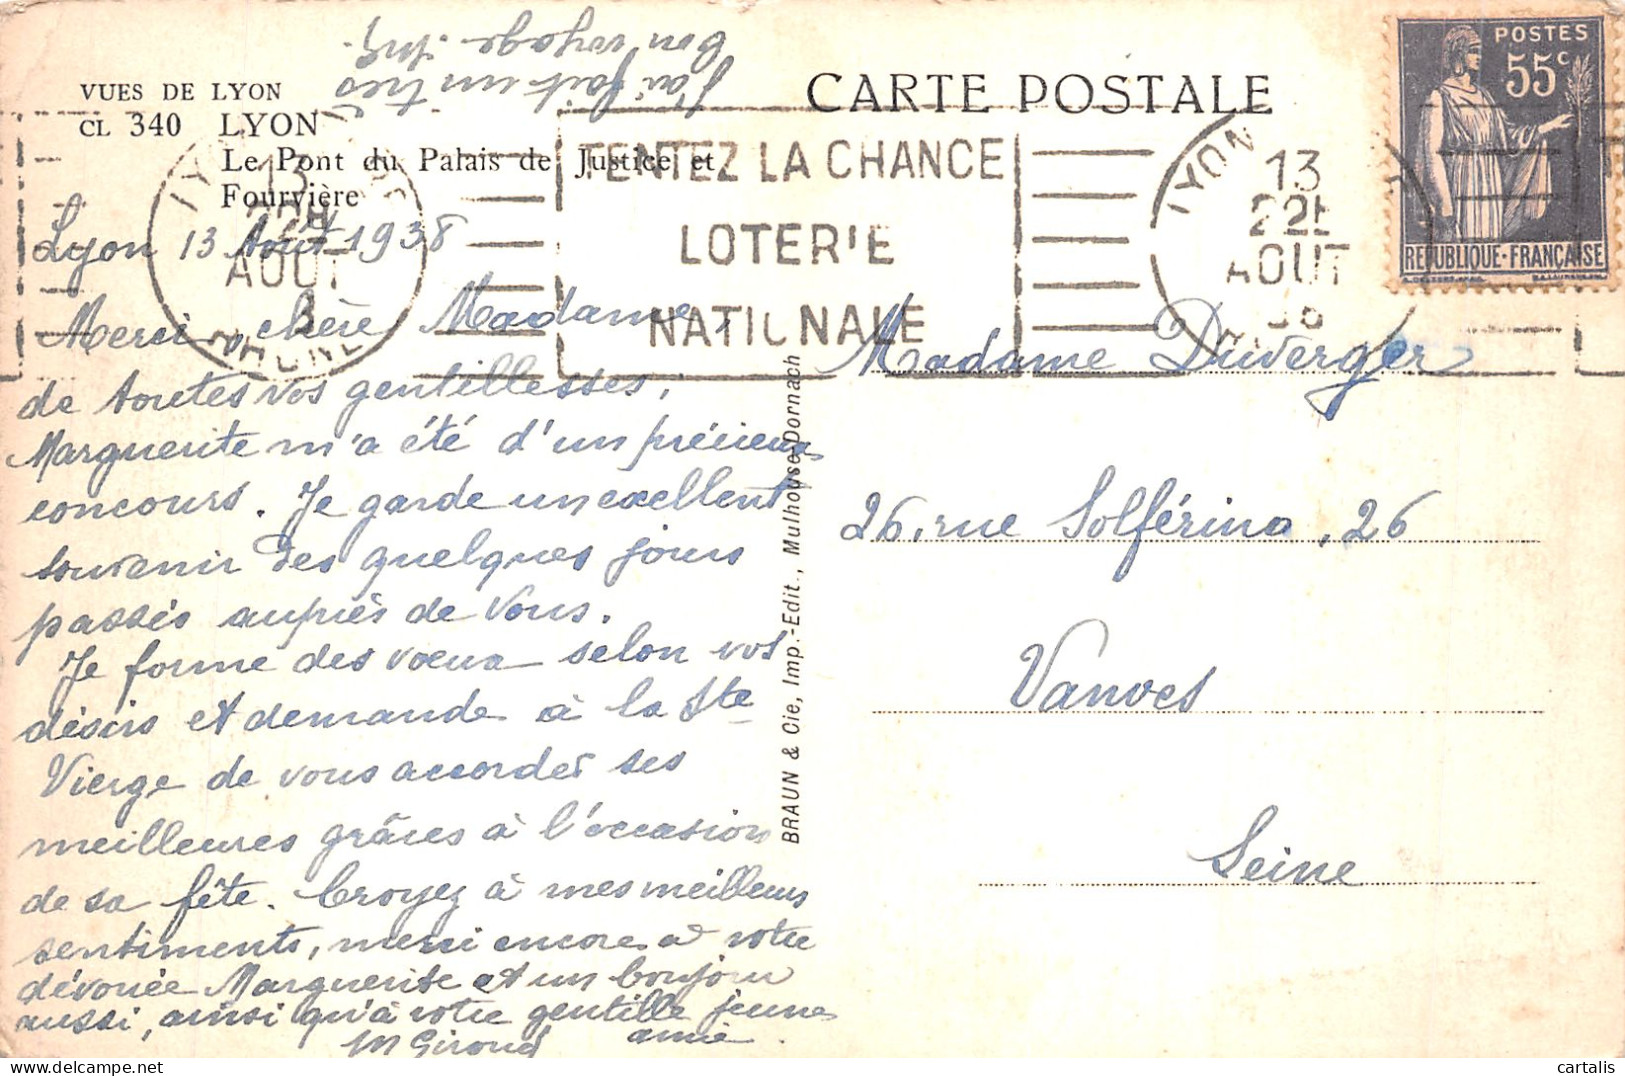 J'ai fait un très
bon voyage.
VUES DE LYON
CL 340 LYON
Le Pont du Palais de Justice et
Fourvière
CARTE POSTALE
POSTES
55c
REPUBLIQUE·FRANÇAISE
LYON
13
22H
AOUT
38
RHONE
TENTEZ LA CHANCE
LOTERIE
NATIONALE
LYON
13
22H
AOUT
38
Lyon 13 Août 1938
Merci, chère Madame,
de toutes vos gentillesses,
Marguerite m'a été d'un précieux
concours. Je garde un excellent
souvenir des quelques jours
passés auprès de Vous.
Je forme des vœux selon vos
désirs et demande à la Ste
Vierge de vous accorder ses
meilleures grâces à l'occasion
de sa fête. Croyez à mes meilleurs
sentiments, merci encore à votre
dévouée Marguerite et un bonjour
aussi, ainsi qu'à votre gentille jeune
amie.
M Giroud
BRAUN & Cie, Imp.-Edit., Mulhouse-Dornach
Madame Duverger
26, rue Solférino, 26
Vanves
Seine
cartalis